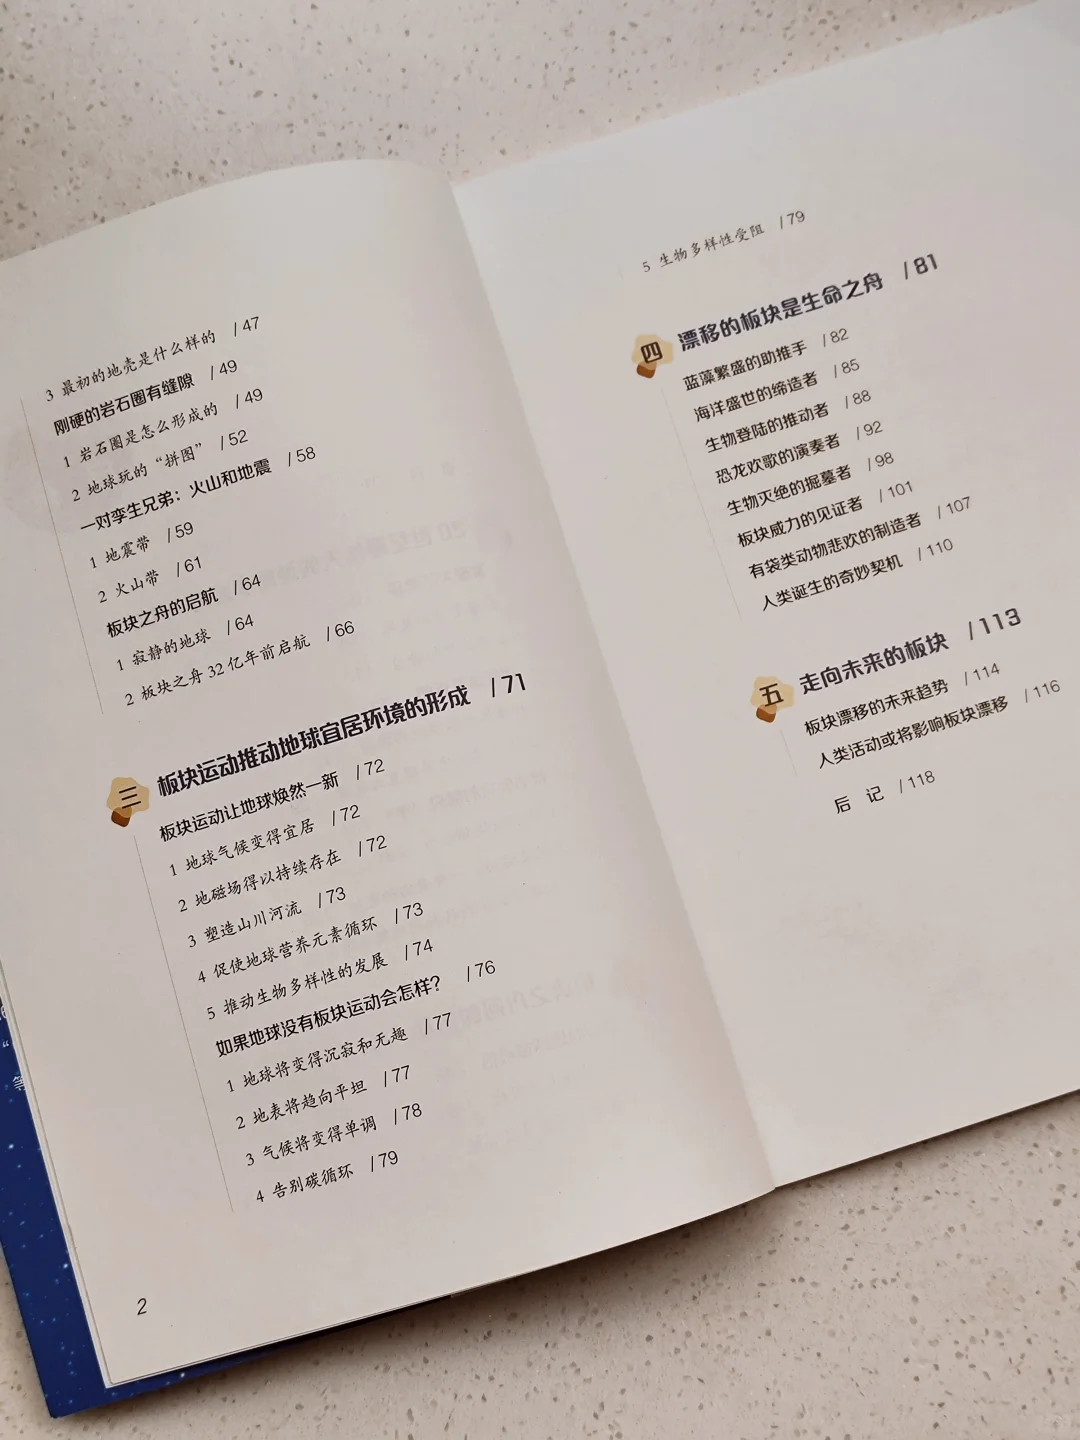 3 最初的地壳是什么样的 /47
刚硬的岩石圈有缝隙 /49
1 岩石圈是怎么形成的 /49
2 地球玩的“拼图” /52
一对孪生兄弟：火山和地震 /58
1 地震带 /59
2 火山带 /61
板块之舟的启航 /64
1 寂静的地球 /64
2 板块之舟32亿年前启航 /66
三 板块运动推动地球宜居环境的形成 /71
板块运动让地球焕然一新 /72
1 地球气候变得宜居 /72
2 地磁场得以持续存在 /72
3 塑造山川河流 /73
4 促使地球营养元素循环 /73
5 推动生物多样性的发展 /74
如果地球没有板块运动会怎样？ /76
1 地球将变得沉寂和无趣 /77
2 地表将趋向平坦 /77
3 气候将变得单调 /78
4 告别碳循环 /79
2
5 生物多样性受阻 /79
四 漂移的板块是生命之舟 /81
蓝藻繁盛的助推手 /82
海洋盛世的缔造者 /85
生物登陆的推动者 /88
恐龙欢歌的演奏者 /92
生物灭绝的掘墓者 /98
板块威力的见证者 /101
有袋类动物悲欢的制造者 /107
人类诞生的奇妙契机 /110
五 走向未来的板块 /113
板块漂移的未来趋势 /114
人类活动或将影响板块漂移 /116
后 记 /118